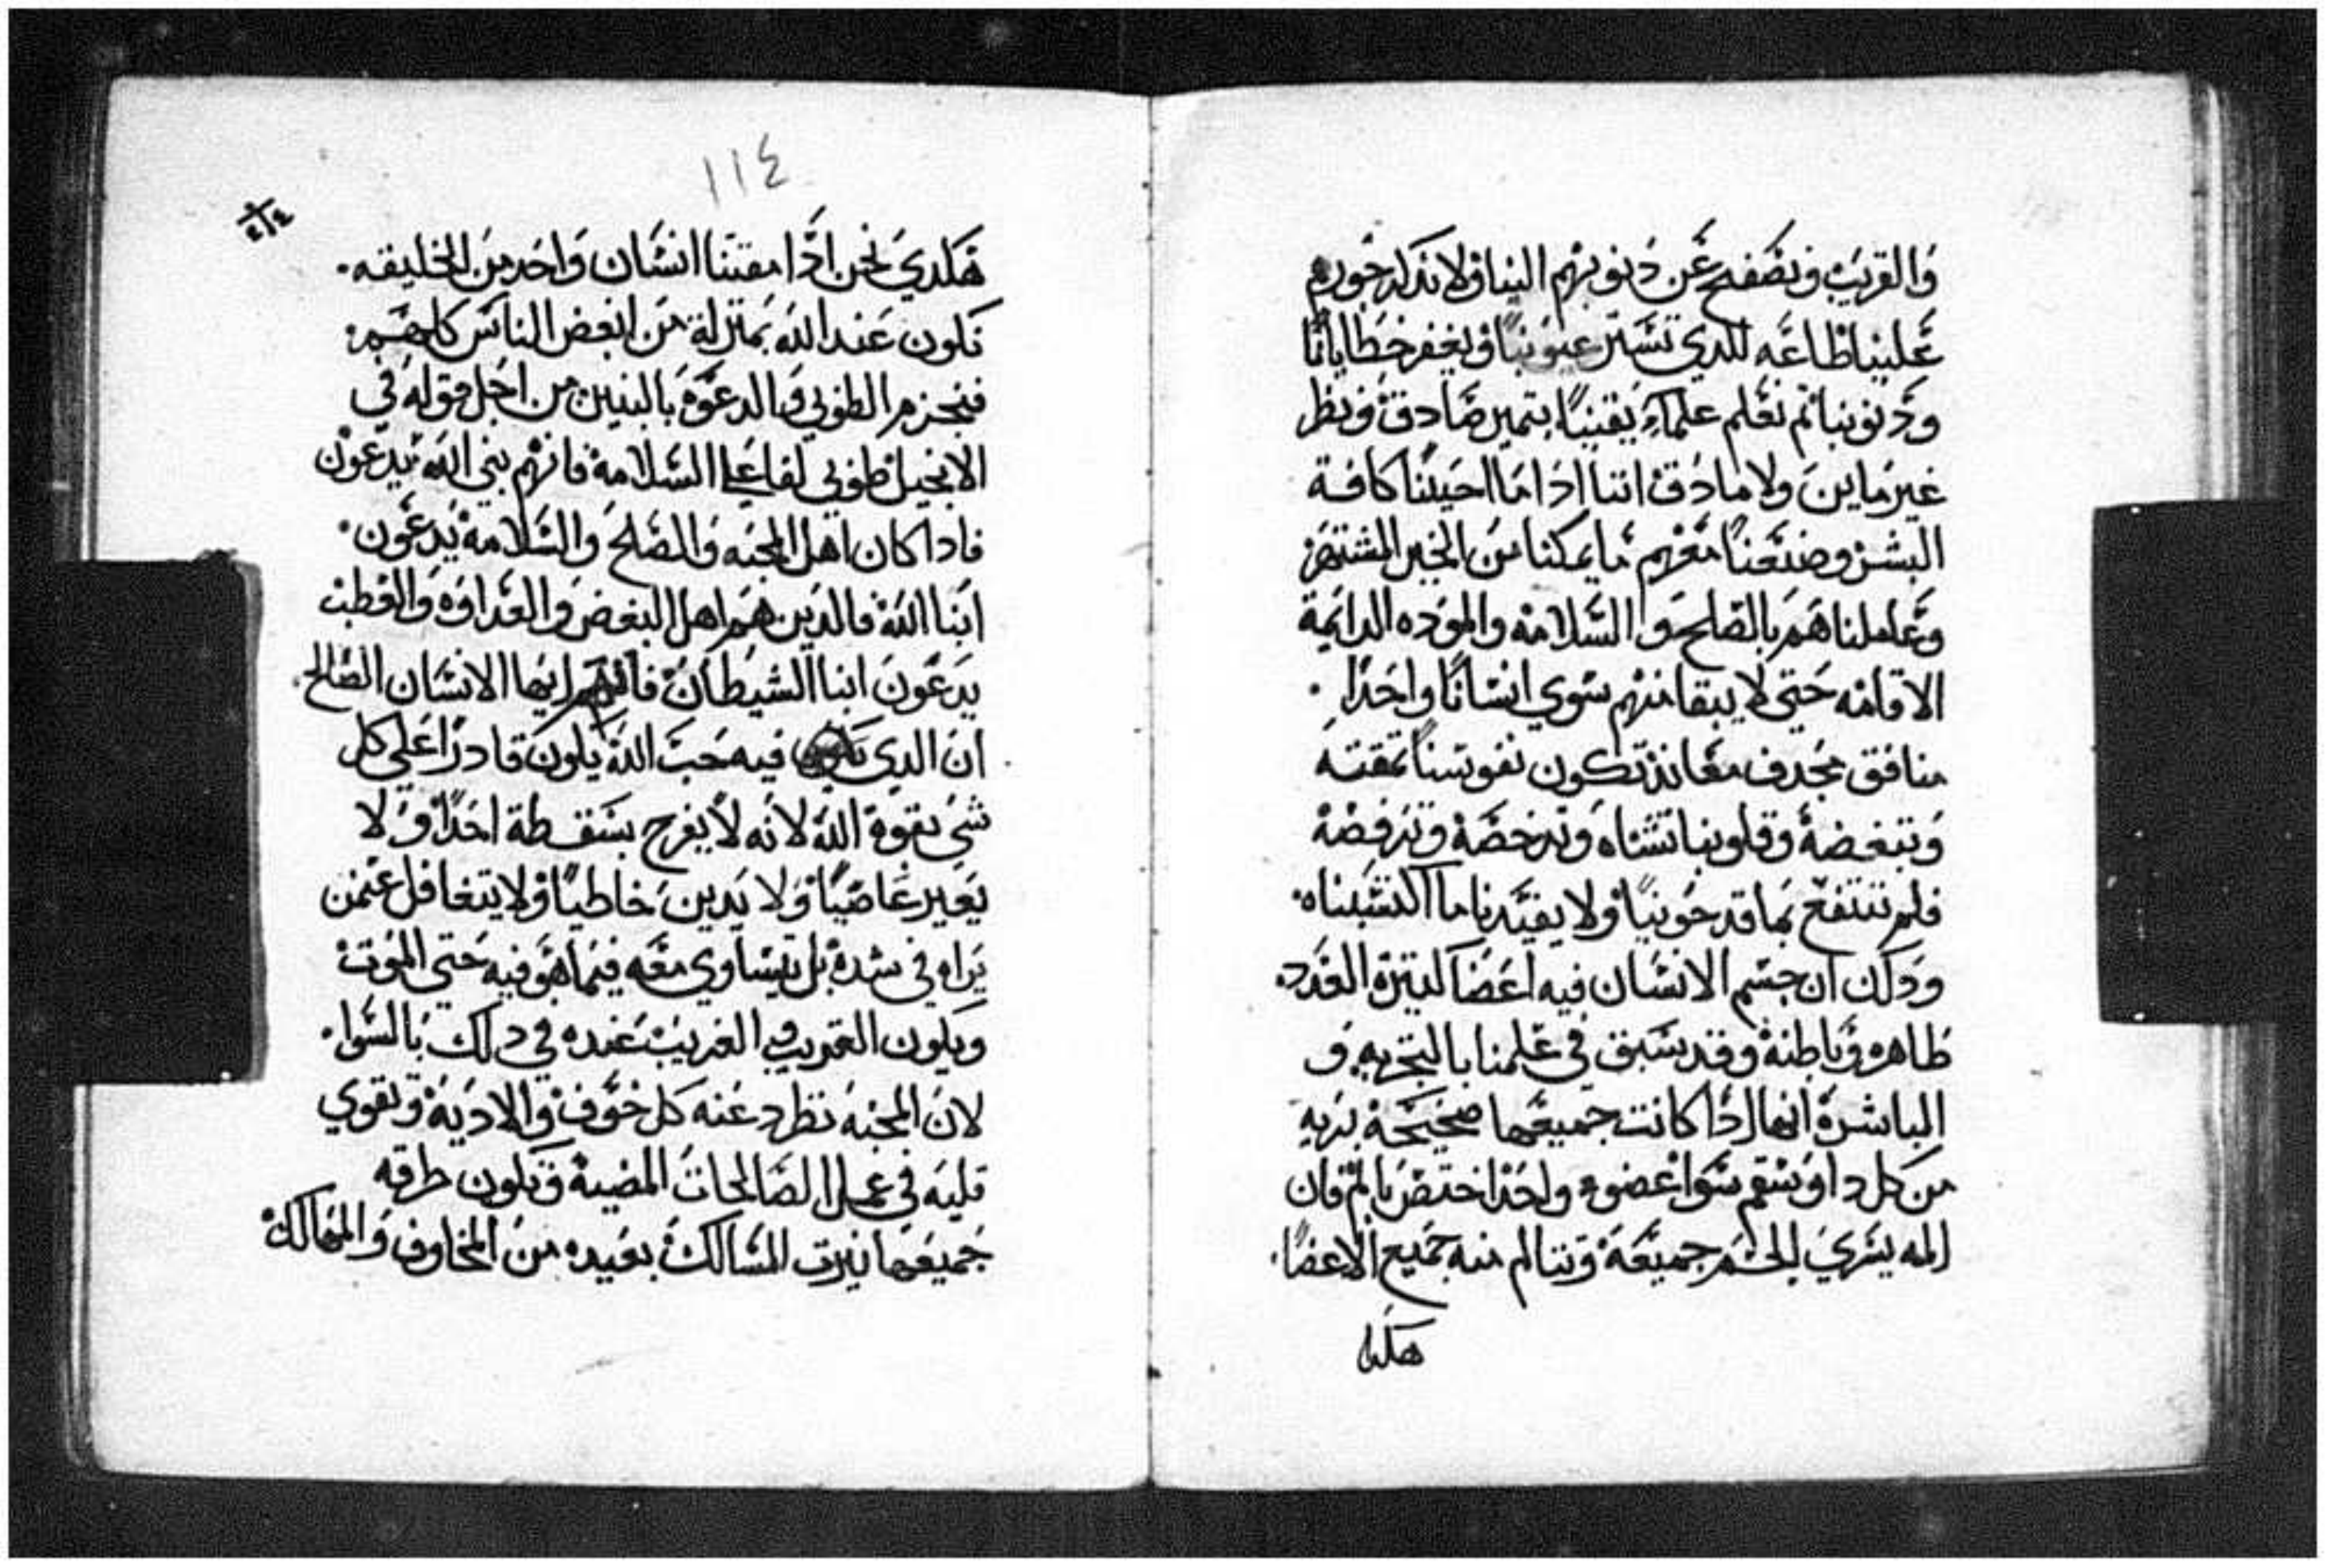 والقريب ونصفح عن دنوبهم الينا ولا نداد
علينا طاعه للدي تستر عيوبنا ويغفر خطايانا
ودنوبنا ثم نعلم علماً يقيناً بتميز صادق ونظر
غير ماين ولا مادق اننا ادا ما احببنا كافة
البشر وصنعنا معهم ما يمكنا من الخير المشتهر
وعاملناهم بالصلح والسلامه والموده الدايمة
الاقامه حتي لا يبقا منهم سوي انسانا واحدا .
منافق مجدف معاند تكون نفوسنا تمقته
وتبغضة وقلوبنا تشناه وتدحضة وترفضة
فلم ننتفع بما قد حوينا ولا يفيدنا ما اكتسبناه.
ودلك ان جسم الانسان فيه اعضا كتيرة العدد.
ظاهره وباطنة وقد سبق في علمنا بالتجربه و
المباشرة انها ادا كانت جميعها صحيحة بريه
من كل دا وسقم سوا عضو واحدا اختص بالم فان
المه يسري للجسم جميعة وتتالم منه جميع الاعضا.
هكدا
١١٤
هكدي نحن ادا مقتنا انسان واحد من الخليقه.
نكون عند الله بمنزلة من ابغض الناس كلهم
فنحزم الطوبي والدعوة بالبنين من اجل قوله في
الانجيل طوبي لفاعلي السلامة فانهم بني الله يدعون
فادا كان اهل المحبه والصلح والسلامة يدعون.
ابنا الله فالدين هم اهل البغض والعداوه والقطب
يدعون ابنا الشيطان فافهم ايها الانسان الصالح.
ان الدي فيه حب الله يكون قادرا علي كل
شي بقوة الله لانه لا يفرح بسقطة احدا ولا
يعير عاصيا ولا يدين خاطيا ولا يتغافل عنمن
يراه في شدة بل يتساوي معه فيما هو فيه حتي الموت
ويكون القريب والغريب عنده في دلك بالسوا.
لان المحبه تطرد عنه كل خوف والادية وتقوي
قلبه في عمل الصالحات المضية وتكون طرقه
جميعها نيرت المسالك بعيده من المخاوف والمهالك